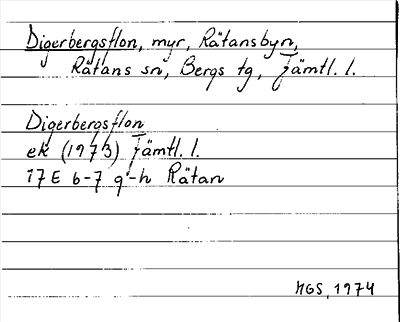 Digerbergsflon, myr, Rätansbyn,
Rätans sn, Bergs tg, Jämtl. l.
Digerbergsflon
ek (1973) Jämtl. l.
17E 6-7 g-h Rätan
MGS, 1974